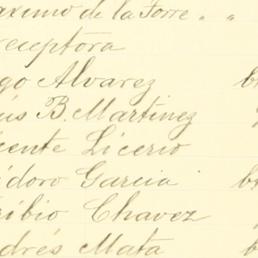 aximo de la Torre " "
receptora
go Alvarez b
us B. Martinez
cente Licerio
idoro Garcia b
ribio Chavez
drés Mata b